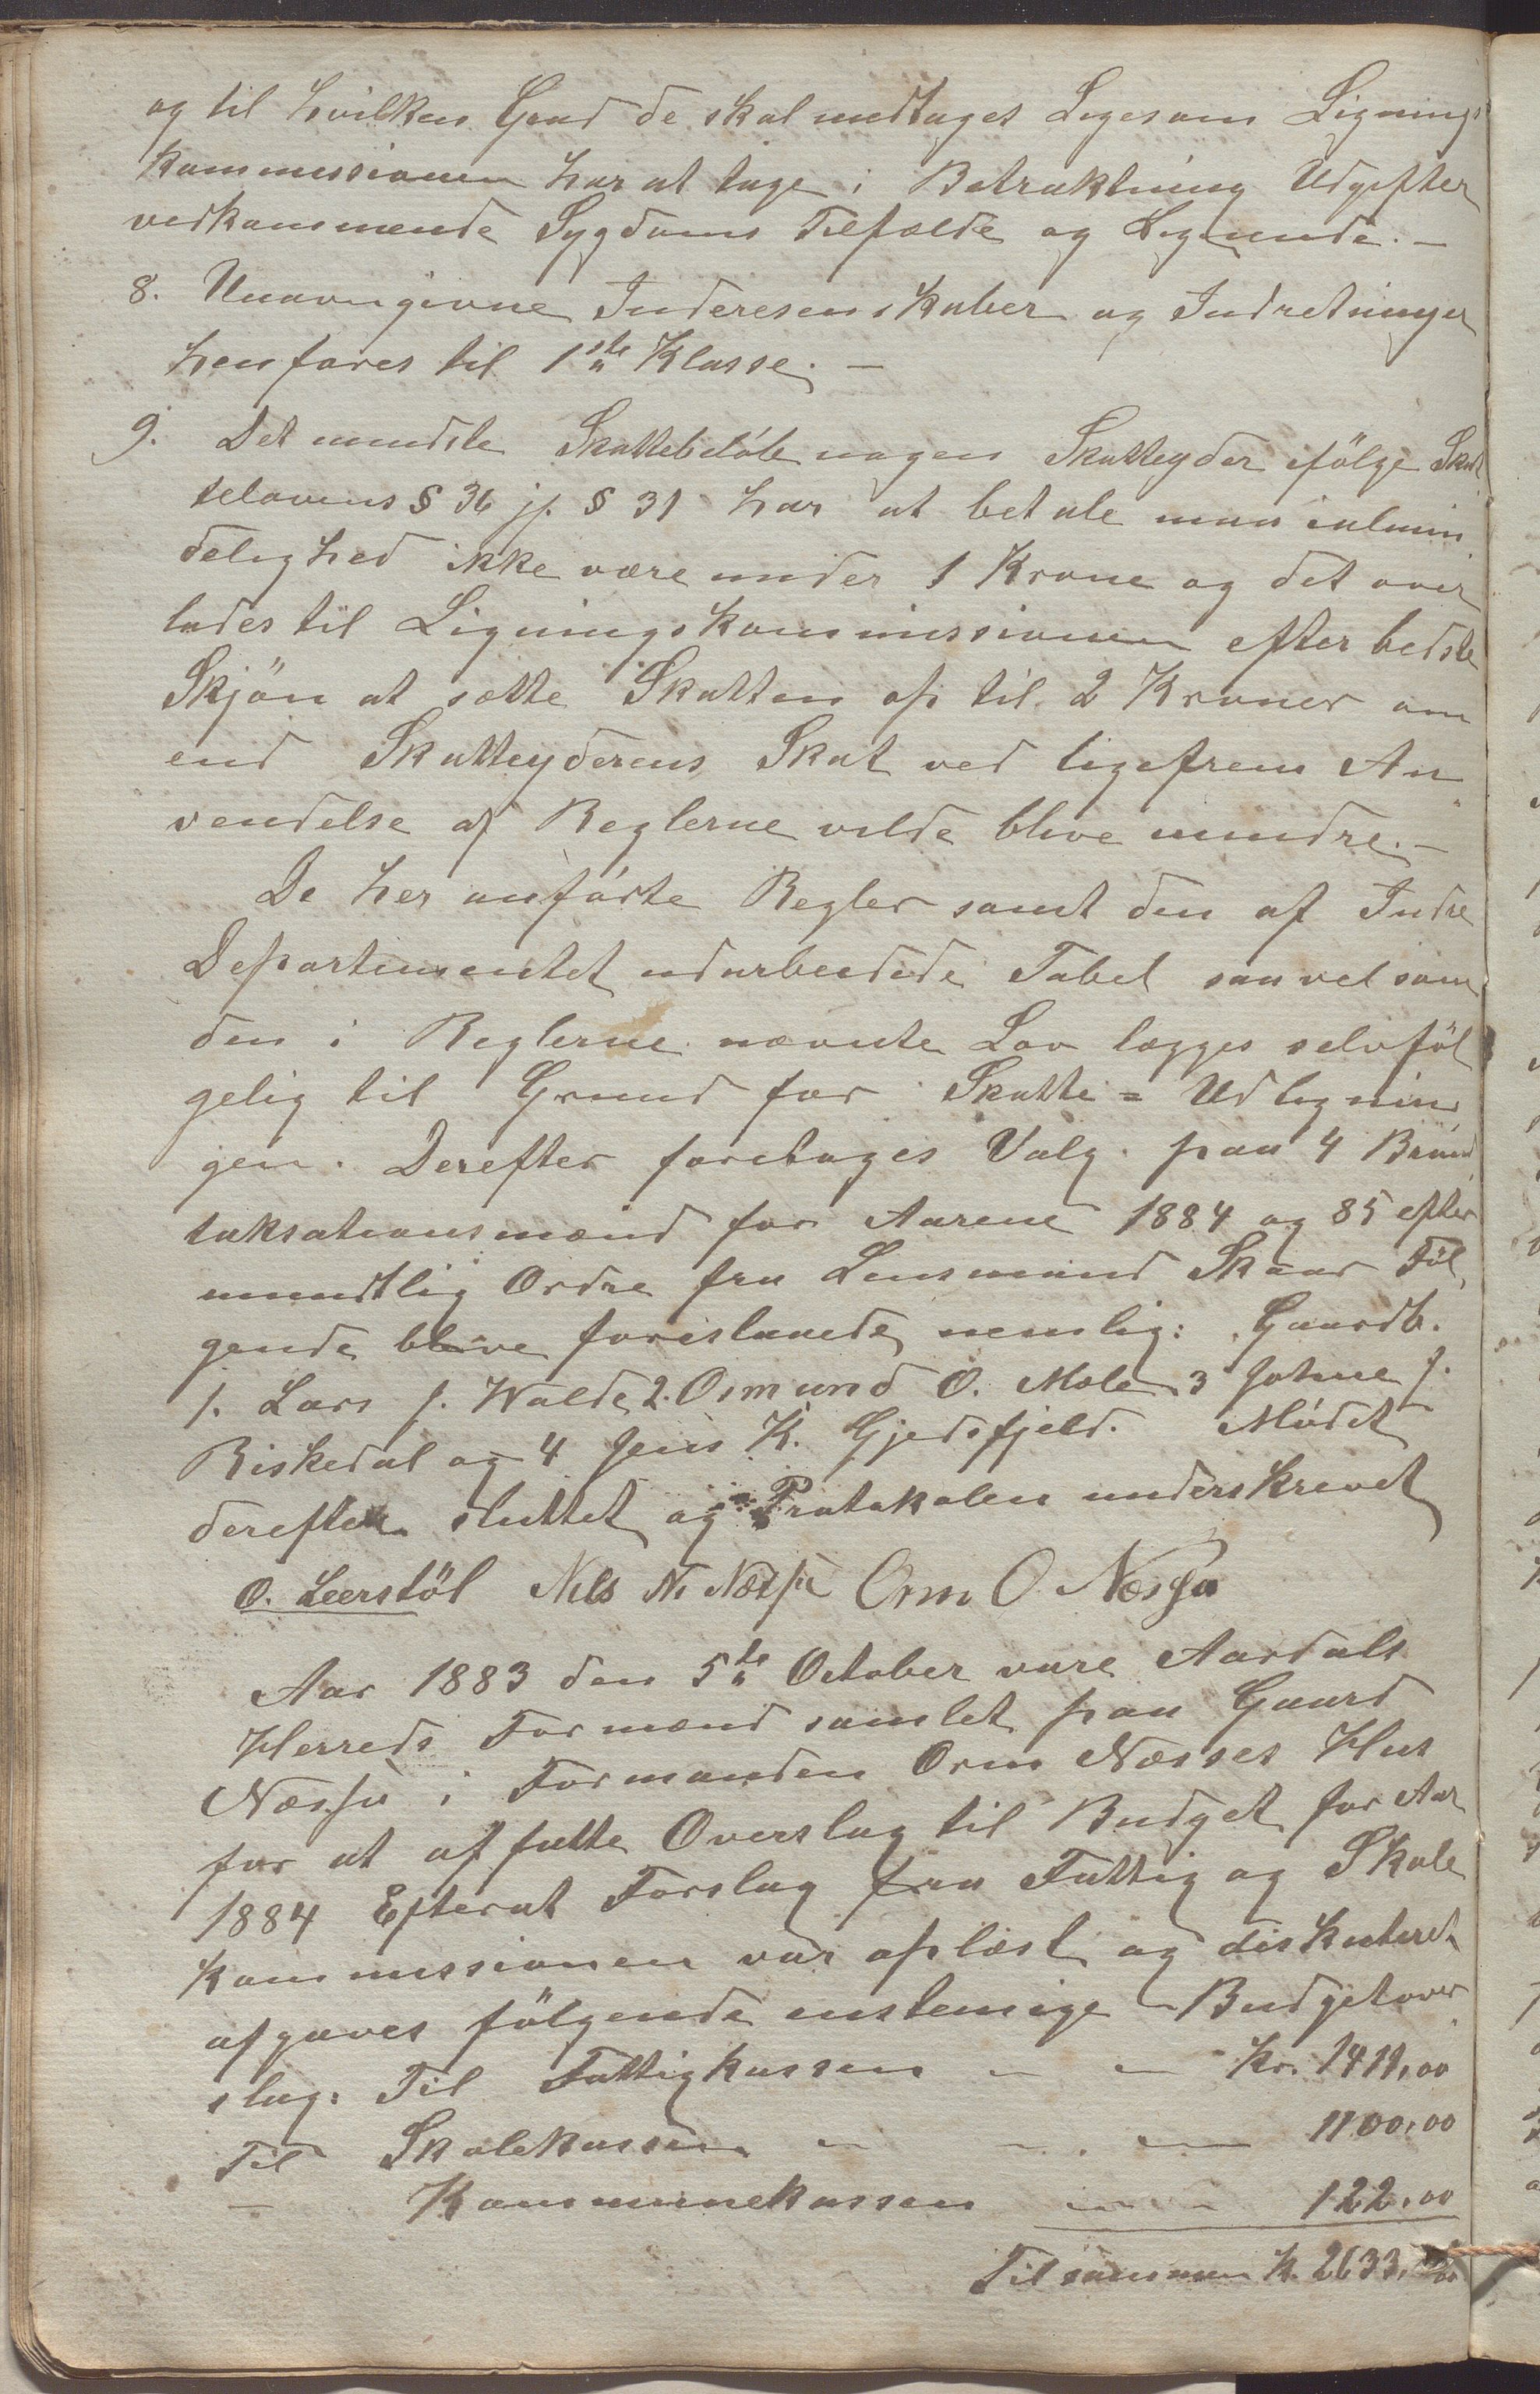 og til hvilken Grad de skal medtages Ligesom Lignings
kommissionen har at tage i Betraktning Udgifter
vedkommende Sygdoms Tilfælde og Lignende. —
8. Unavngivne Inderesenskaber og Indretninger
henføres til 1ste Klasse. —
9. Det mindste Skattebeløb nogen Skatteyder ifölge Skat
telovens § 36 jf. § 31 har at betale maa i almin
delighed ikke være under 1 Krone og det over
lades til Ligningskommissionen efter bedste
Skjön at sætte Skatten op til 2 Kroner om
end Skatteyderens Skat ved ligefrem An
vendelse af Reglerne vilde blive mindre. —
De her anførte Regler samt den af Indre
Departementet udarbeidede Tabel saavel som
den i Reglerne nævnte Lov lægges selvföl
gelig til Grund for Skatte = Udlignin
gen. Derefter foretages Valg paa 4 Brand
taksationsmænd for Aarene 1884 og 85 efter
mundtlig Ordre fra Lensmand Skaar Föl
gende blive foreslaaede nemlig: Gaardb.
1. Lars J. Walde 2. Osmund O. Mæle 3 Johne J.
Riskedal og 4 Jens K. Gjedsfjeld. Mödet
derefter sluttet og Protokolen underskrevet
O. Leerstöl Nils N. Næssa Orm O. Næssa
Aar 1883 den 5te October vare Aardals
Herreds Formænd samlet paa Gaard
Næssa i Formanden Orm Næsses Hus
for at affatte Overslag til Budget for Aar
1884 Efterat Forslag fra Fattig og Skole
kommissionen var oplæst og diskuteret
afgaves fölgende enstemige Budgetover
slag: Til Fattigkassen — — Kr. 1411,00
Til Skolekassen — — — 1100,00
— Kommunekassen — — 122,00
Tilsammen K. 2633,00